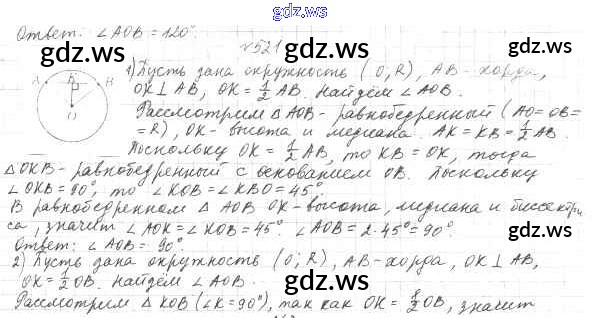 gdz.ws
Ответ: ∠AOB = 120°.
gdz.ws gdz.ws
№521
1) Пусть дана окружность (O, R), AB - хорда,
OK ⊥ AB, OK = 1/2 AB. Найдём ∠AOB.
A K B
O
Рассмотрим △AOB - равнобедренный (AO = OB =
= R), OK - высота и медиана. AK = KB = 1/2 AB.
gdz.ws gdz.ws
Поскольку OK = 1/2 AB, то KB = OK, тогда
△OKB - равнобедренный с основанием OB. Поскольку
∠OKB = 90°, то ∠KOB = ∠KBO = 45°.
В равнобедренном △AOB OK - высота, медиана и биссектри
са, значит ∠AOK = ∠KOB = 45° ∠AOB = 2·45° = 90°.
gdz.ws gdz.ws
Ответ: ∠AOB = 90°.
2) Пусть дана окружность (O; R), AB - хорда, OK ⊥ AB,
OK = 1/2 OB. Найдём ∠AOB.
Рассмотрим △KOB (∠K = 90°), так как OK = 1/2 OB, значит
gdz.ws gdz.ws